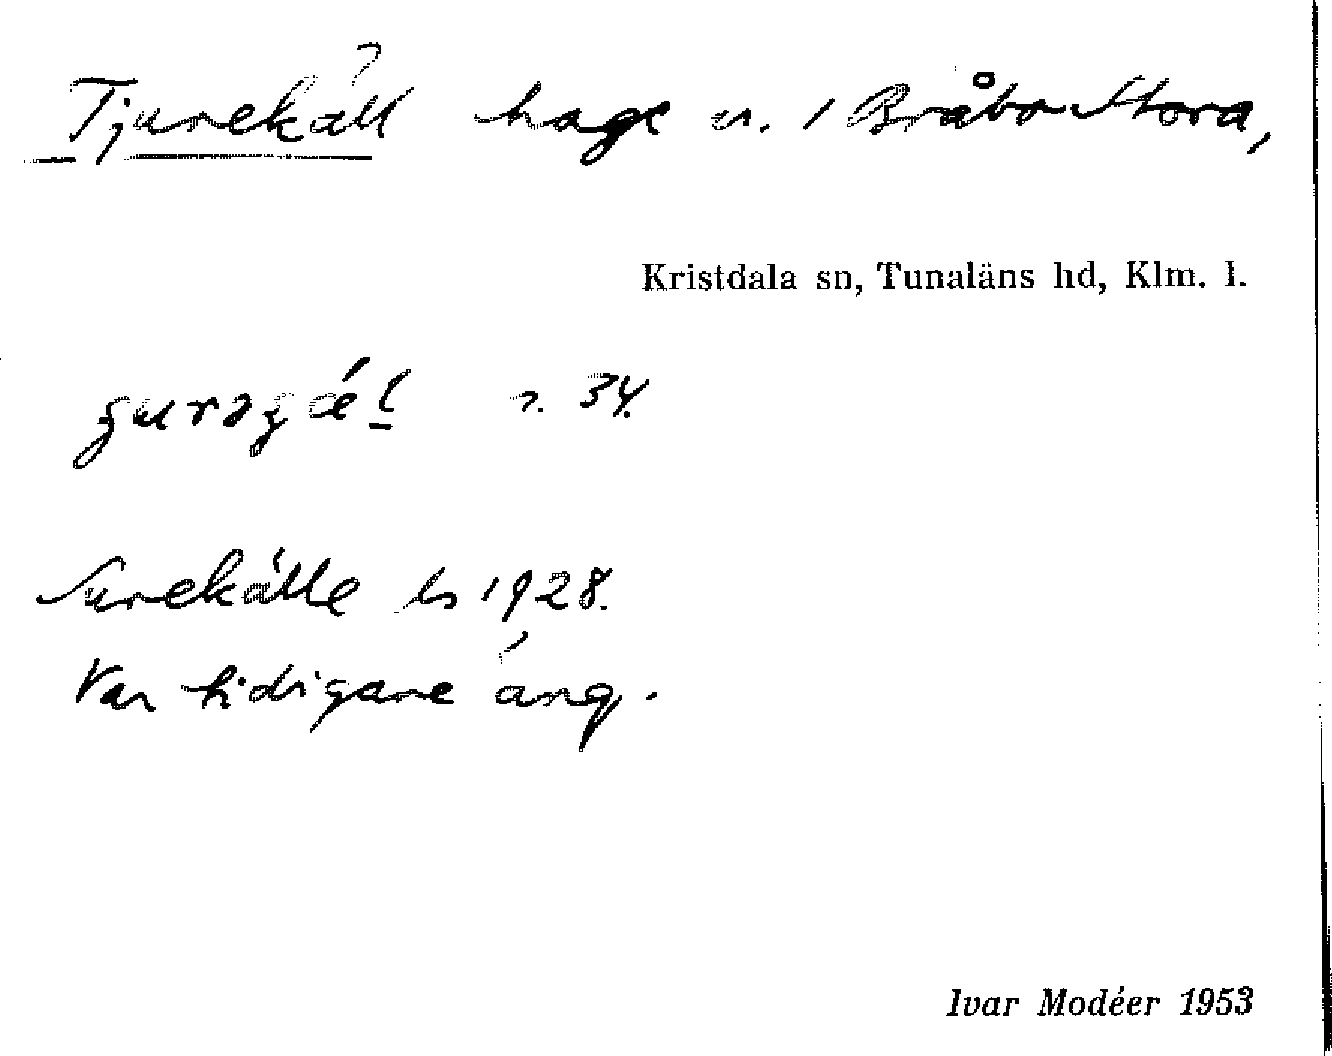 Tjurekäll hage u. / Bråbo Stora,
Kristdala sn, Tunaläns hd, Klm. l.
34.
Surekälle ls 1928.
Var tidigare äng.
Ivar Modéer 1953